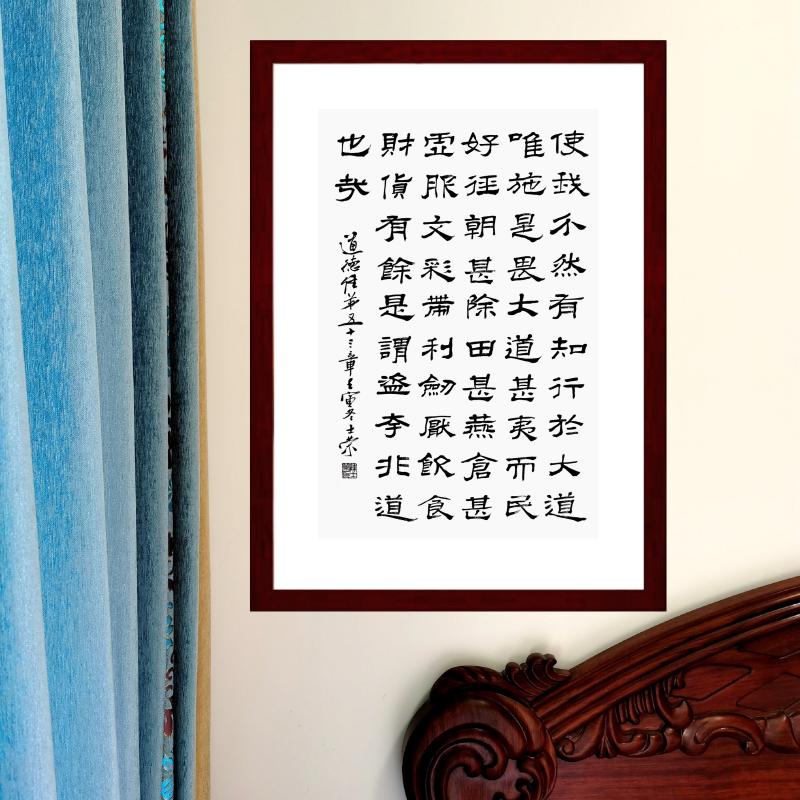 使我介然有知行於大道
唯施是畏大道甚夷而民
好徑朝甚除田甚蕪倉甚
虛服文彩帶利劍厭飲食
財貨有餘是謂盜夸非道
也哉
道德經第五十三章壬寅冬士榮